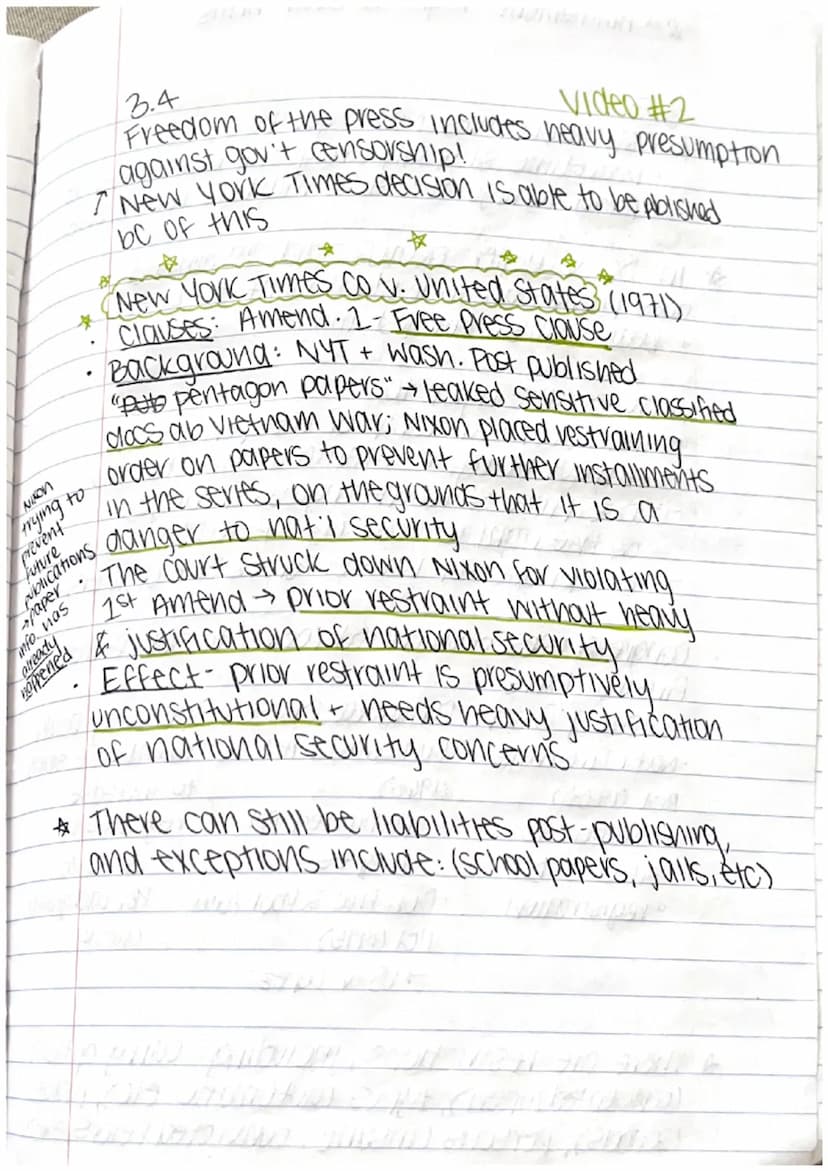 3.4
Video #2
Freedom of the press includes heavy presumption
against gov't censorship!
↑ New York Times decision is able to be pblished
bc of this
New York Times Co v. United States (1971)
• Clauses: Amend. 1 - Free Press Clause
• Background: NYT + Wash. Post published
"Pub pentagon papers" → leaked sensitive classified
docs ab Vietnam War; Nixon placed restraining
order on papers to prevent further installments
in the series, on the grounds that it is a
danger to nat'l security
• The Court struck down Nixon for violating
1st Amend → prior restraint without heavy
& justification of national security
• Effect - prior restraint is presumptively
unconstitutional + needs heavy justification
of national security concerns
Nixon
trying to
prevent
future
publications
→ paper
info has
already
happened
☆ There can still be liabilities post-publishing,
and exceptions include: (school papers, jails, etc)